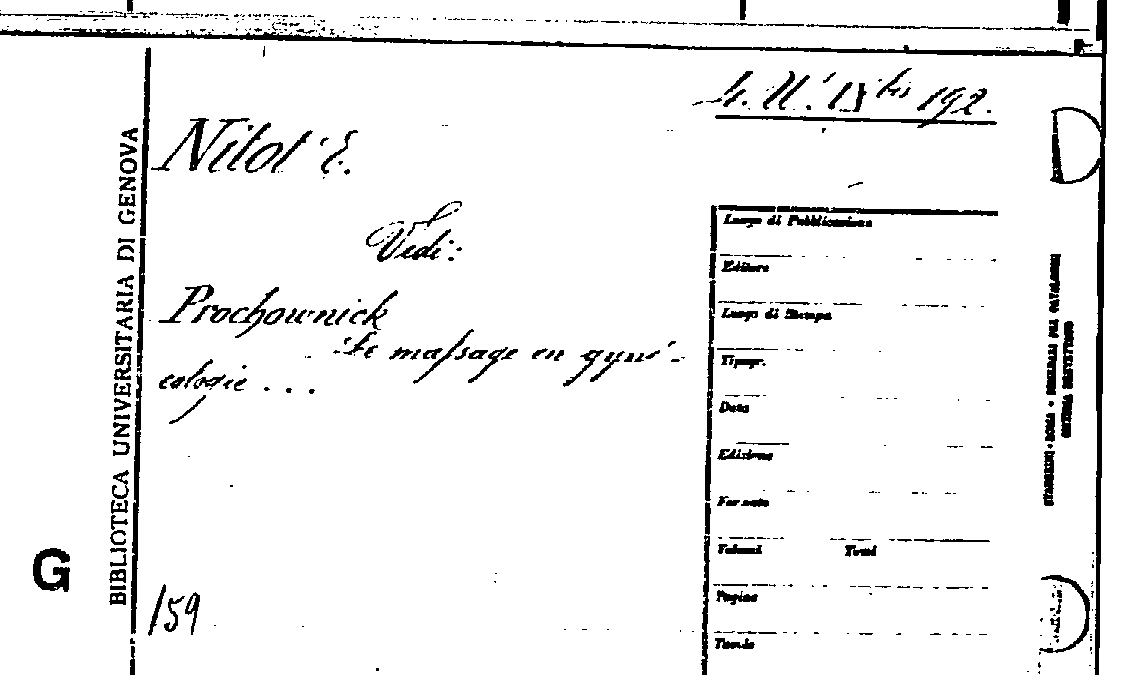 4. U. 15 bis 192.
Nitot E.
Vedi:
Prochownick
Le massage en gyné-
cologie . . .
BIBLIOTECA UNIVERSITARIA DI GENOVA
G
159
Luogo di Pubblicazione
Editore
Luogo di Stampa
Tipogr.
Data
Edizione
Formato
Volumi Tomi
Pagine
Tavole